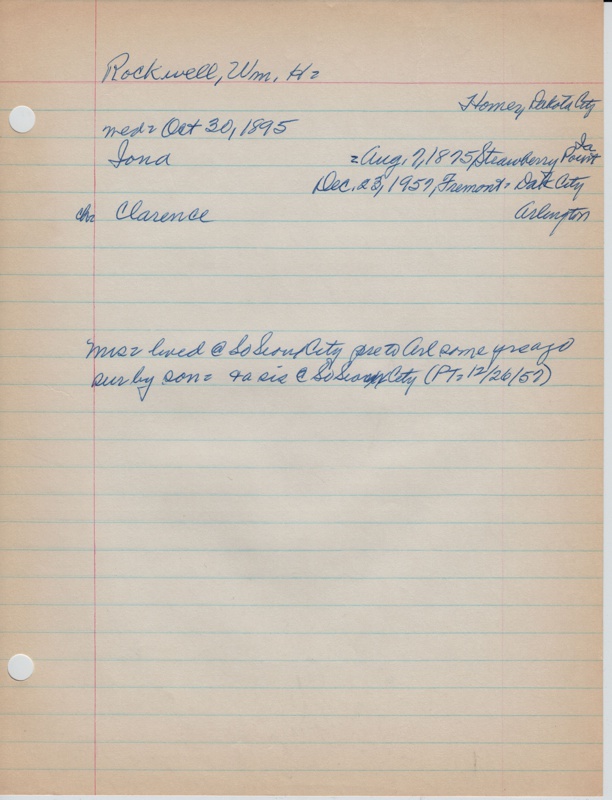 Rockwell, Wm. H=
Homer, Dakota City
med= Oct 30, 1895
Iona =Aug. 7, 1875, Strawberry Point Ia
Dec. 23, 1957, Fremont= Dak City
ch= Clarence Arlington
Mrs= lived @ So Sioux City pre to Arl some yrs ago
sur by son= + a sis @ So Sioux City (PT= 12/26/57)